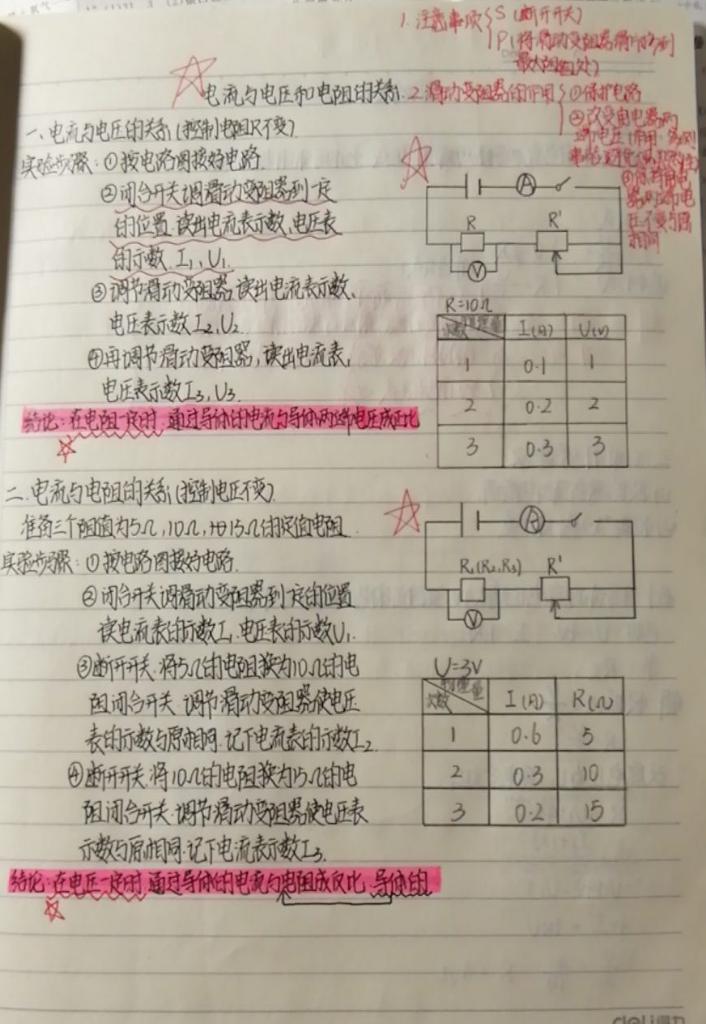 1.注意事项 S(断开开关)
P(将滑动变阻器滑片移到
最大阻值处)
电流与电压和电阻的关系
2.滑动变阻器的作用 ①保护电路
②改变用电器两
端电压
③保持用电
器两端电压
不变与原
相同
一、电流与电压的关系(控制电阻R不变)
实验步骤:①按电路图接好电路
②闭合开关调滑动变阻器到一定
的位置读出电流表示数、电压表
的示数.I₁,U₁
③调节滑动变阻器,读出电流表示数、
电压表示数I₂,U₂
④再调节滑动变阻器,读出电流表,
电压表示数I₃,U₃
结论:在电阻一定时,通过导体的电流与导体两端电压成正比
A
R R'
V
R=10Ω
次数 物理量 I(A) U(V)
1 0.1 1
2 0.2 2
3 0.3 3
二.电流与电阻的关系(控制电压不变)
准备三个阻值为5Ω,10Ω,和15Ω的定值电阻
实验步骤:①按电路图接好电路
②闭合开关调滑动变阻器到一定的位置
读电流表的示数I₁电压表的示数U₁
③断开开关.将5Ω的电阻换为10Ω的电
阻闭合开关.调节滑动变阻器使电压
表的示数与原相同.记下电流表的示数I₂
④断开开关.将10Ω的电阻换为15Ω的电
阻闭合开关.调节滑动变阻器使电压表
示数与原相同.记下电流表示数I₃.
结论:在电压一定时,通过导体的电流与电阻成反比 导体的
A
R₁(R₂,R₃) R'
V
U=3V
次数 物理量 I(A) R(Ω)
1 0.6 5
2 0.3 10
3 0.2 15
deli得力